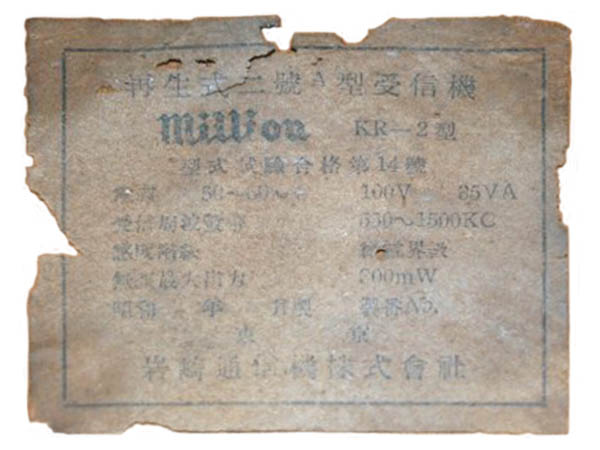 再生式二號A型受信機
Million KR-2型
型式試驗合格第14號
電源 50~60~ 100V 35VA
受信周波數帶 550~1500KC
感度階級 微電界級
無歪最大出力 200mW
昭和 年 月製 製番No.
東京
岩崎通信機株式會社